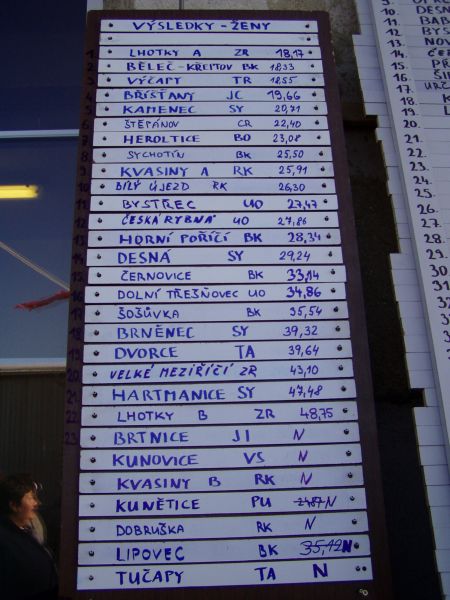 VÝSLEDKY - ŽENY
1 LHOTKY A ZR 18,17
2 BĚLEČ-KŘEPTOV BK 18,33
3 VÝČAPY TR 18,55
4 BŘÍŠŤANY JC 19,66
5 KAMENEC SY 20,71
6 ŠTĚPÁNOV CR 22,40
7 HEROLTICE BO 23,08
8 SYCHOTÍN BK 25,50
9 KVASINY A RK 25,91
10 BÍLÝ ÚJEZD RK 26,30
11 BYSTŘEC UO 27,47
12 ČESKÁ RYBNÁ UO 27,86
13 HORNÍ POŘÍČÍ BK 28,34
14 DESNÁ SY 29,24
15 ČERNOVICE BK 33,14
16 DOLNÍ TŘEŠŇOVEC UO 34,86
17 ŠOŠŮVKA BK 35,54
18 BRNĚNEC SY 39,32
19 DVORCE TA 39,64
20 VELKÉ MEZIŘÍČÍ ZR 43,10
21 HARTMANICE SY 47,48
22 LHOTKY B ZR 48,75
23 BRTNICE JI N
KUNOVICE VS N
KVASINY B RK N
KUNĚTICE PU N
DOBRUŠKA RK N
LIPOVEC BK 35,42 N
TUČAPY TA N
10. DESN
11. BAB
12. BYS
13. NOV
14.
15. PR
16.
17.
18. K
19. L
20.
21.
22.
23.
24.
25.
26.
27.
28.
29.
30.
31.
32.
33.
34.